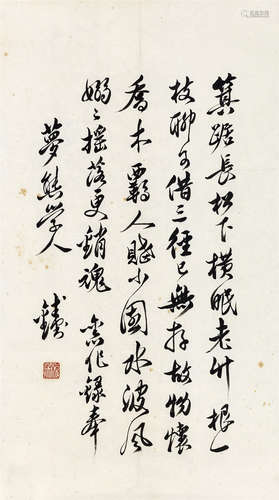 箕踞長松下横眠老竹根一
枝聊可借三徑已無存故物懷
喬木羈人賦小園水波風
嫋〻摇落更銷魂 舊作錄奉
夢熊學人